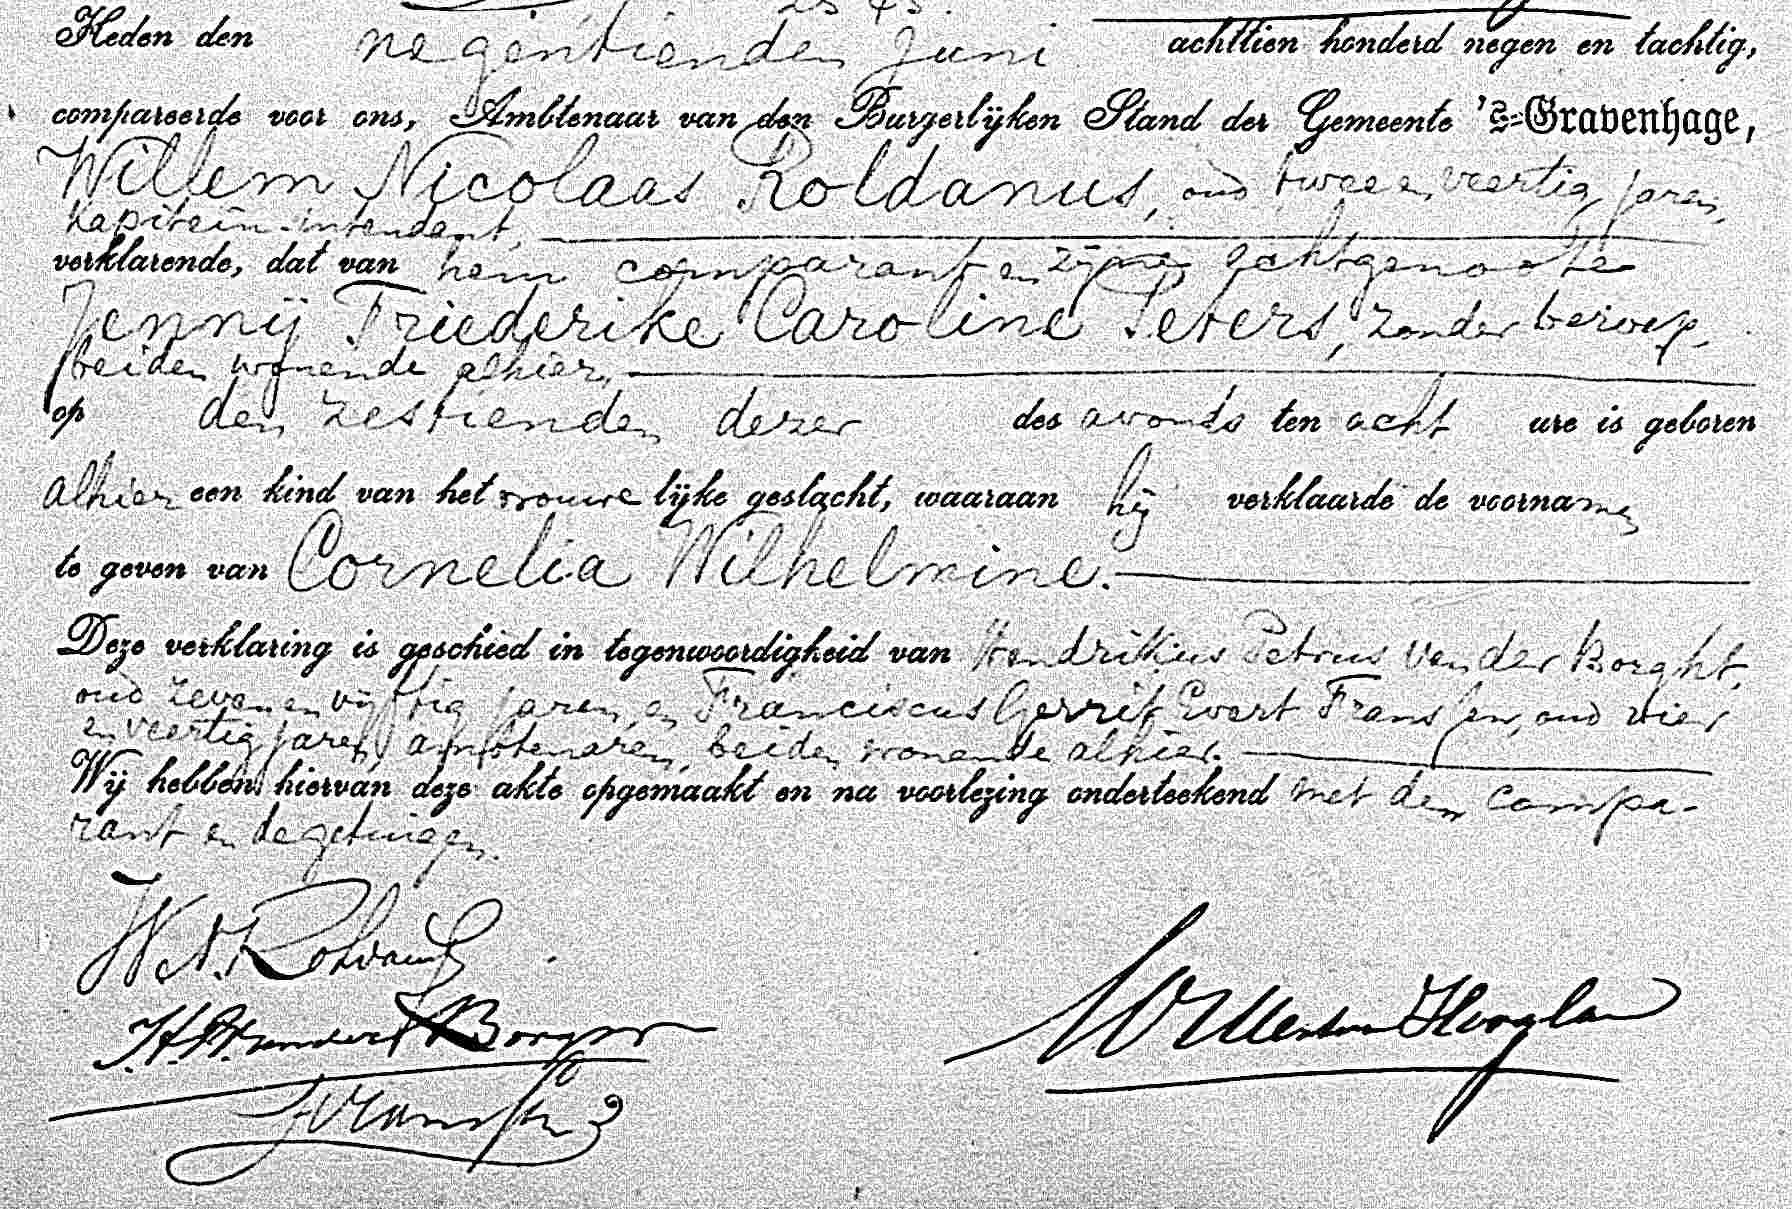 Heden den negentienden Juni achttien honderd negen en tachtig,
compareerde voor ons, Ambtenaar van den Burgerlijken Stand der Gemeente 's-Gravenhage,
Willem Nicolaas Roldanus, oud twee en veertig jaren,
kapitein-intendant,
verklarende, dat van hem comparant en zijne echtgenoote
Jennij Friederike Caroline Peters, zonder beroep,
beiden wonende alhier,
op den zestienden dezer des avonds ten acht ure is geboren
alhier een kind van het vrouwelijke geslacht, waaraan hij verklaarde de voornamen
te geven van Cornelia Wilhelmine.
Deze verklaring is geschied in tegenwoordigheid van Hendrikus Petrus van der Borght,
oud zeven en vijftig jaren, en Franciscus Gerrit Evert Franssen, oud vier
en veertig jaren, ambtenaren, beiden wonende alhier.
Wij hebben hiervan deze akte opgemaakt en na voorlezing onderteekend met den compa-
rant en de getuigen.
W. N. Roldanus